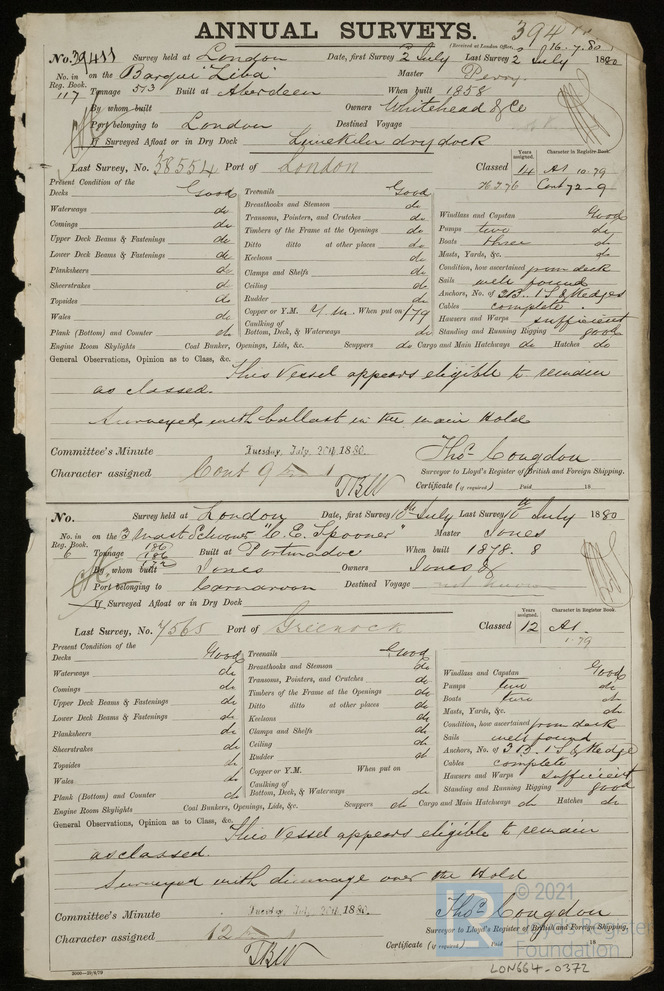 ANNUAL SURVEYS.
394
(Received at London Office, 16.7.80)
No. 39411 Survey held at London Date, first Survey 2 July Last Survey 2 July 1880
No. in Reg. Book. 117 on the Barque "Ziba" Master Perry
Tonnage 573 Built at Aberdeen When built 1858
By whom built Owners Whitehead & Co
Port belonging to London Destined Voyage
If Surveyed Afloat or in Dry Dock Limekiln dry dock
Last Survey, No. 38554 Port of London Classed
Years assigned. 14 Character in Register Book. A1 10.79
Cont 72-9
Present Condition of the
Decks Good
Waterways do
Comings do
Upper Deck Beams & Fastenings do
Lower Deck Beams & Fastenings do
Planksheers do
Sheerstrakes do
Topsides do
Wales do
Plank (Bottom) and Counter do
Engine Room Skylights
Treenails Good
Breasthooks and Stemson do
Transoms, Pointers, and Crutches do
Timbers of the Frame at the Openings do
Ditto ditto at other places do
Keelsons do
Clamps and Shelfs do
Ceiling do
Rudder do
Copper or Y.M. Y.M. When put on /79
Caulking of Bottom, Deck, & Waterways do
Coal Bunker, Openings, Lids, &c. Scuppers do
Windlass and Capstan Good
Pumps two do
Boats three do
Masts, Yards, &c. do
Condition, how ascertained from deck
Sails well found
Anchors, No. of 3B. 1S. & Kedges
Cables complete
Hawsers and Warps sufficient
Standing and Running Rigging good
Cargo and Main Hatchways do Hatches do
General Observations, Opinion as to Class, &c. This Vessel appears eligible to remain
as classed.
Surveyed with ballast in the main Hold
Committee's Minute Tuesday July 20th 1880.
Thos. Congdon
Character assigned Cont 9
Surveyor to Lloyd's Register of British and Foreign Shipping.
Certificate (if required) Paid 18
No. Survey held at London Date, first Survey 10th July Last Survey 10th July 1880
No. in Reg. Book. 6 on the 3 mast Schooner "C. E. Spooner" Master Jones
Tonnage 186 186 172 Built at Portmadoc When built 1878. 8
By whom built Jones Owners Jones &
Port belonging to Carnarvon Destined Voyage not known
If Surveyed Afloat or in Dry Dock
Last Survey, No. 7565 Port of Greenock Classed
Years assigned. 12 Character in Register Book. A1
1.79
Present Condition of the
Decks Good
Waterways do
Comings do
Upper Deck Beams & Fastenings do
Lower Deck Beams & Fastenings do
Planksheers do
Sheerstrakes do
Topsides do
Wales do
Plank (Bottom) and Counter do
Engine Room Skylights
Treenails Good
Breasthooks and Stemson do
Transoms, Pointers, and Crutches do
Timbers of the Frame at the Openings do
Ditto ditto at other places do
Keelsons do
Clamps and Shelfs do
Ceiling do
Rudder do
Copper or Y.M. When put on
Caulking of Bottom, Deck, & Waterways do
Coal Bunkers, Openings, Lids, &c. Scuppers do
Windlass and Capstan Good
Pumps two do
Boats two do
Masts, Yards, &c. do
Condition, how ascertained from deck
Sails well found
Anchors, No. of 3B. 1S. & Kedge
Cables complete
Hawsers and Warps sufficient
Standing and Running Rigging good
Cargo and Main Hatchways do Hatches do
General Observations, Opinion as to Class, &c. This Vessel appears eligible to remain
as classed.
Surveyed with dunnage over the Hold
Committee's Minute Tuesday July 20th 1880.
Thos. Congdon
Character assigned 12
Surveyor to Lloyd's Register of British and Foreign Shipping.
Certificate (if required) Paid 18
© 2021
Lloyd's Register
Foundation
LON664-0372